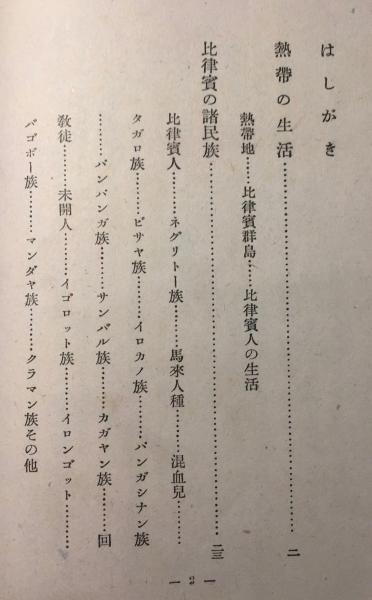 はしがき
熱帶の生活……………………………………二
熱帶地……比律賓群島……比律賓人の生活
比律賓の諸民族……………………………二三
比律賓人………ネグリトー族………馬來人種………混血兒………
タガロ族………ビサヤ族………イロカノ族………パンガシナン族
………パンパンガ族………サンバル族………カガヤン族………回
敎徒………未開人………イゴロット族………イロンゴット………
バゴボー族………マンダヤ族………クラマン族その他
— 2 —